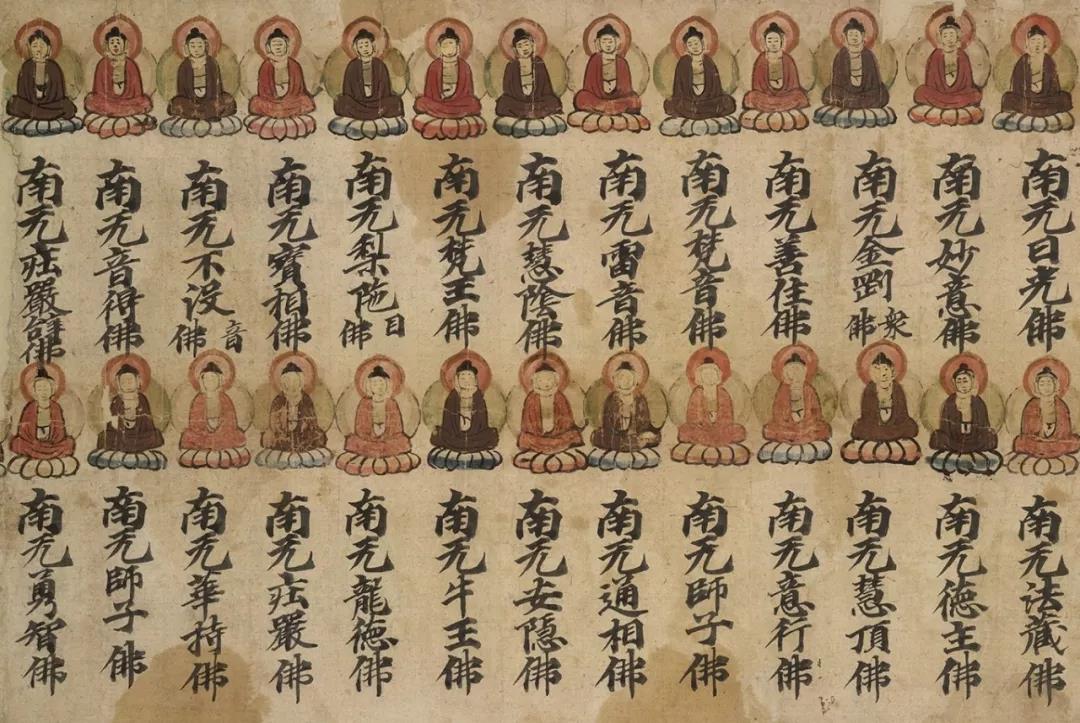 南无日光佛
南无妙意佛
南无金剛衆佛
南无善住佛
南无梵音佛
南无雷音佛
南无慧蔭佛
南无梵王佛
南无梨陁日佛
南无寶相佛
南无不没音佛
南无音得佛
南无庄嚴辭佛
南无法藏佛
南无德主佛
南无慧頂佛
南无意行佛
南无師子佛
南无通相佛
南无安隱佛
南无牛王佛
南无龍德佛
南无庄嚴佛
南无華持佛
南无師子佛
南无勇智佛